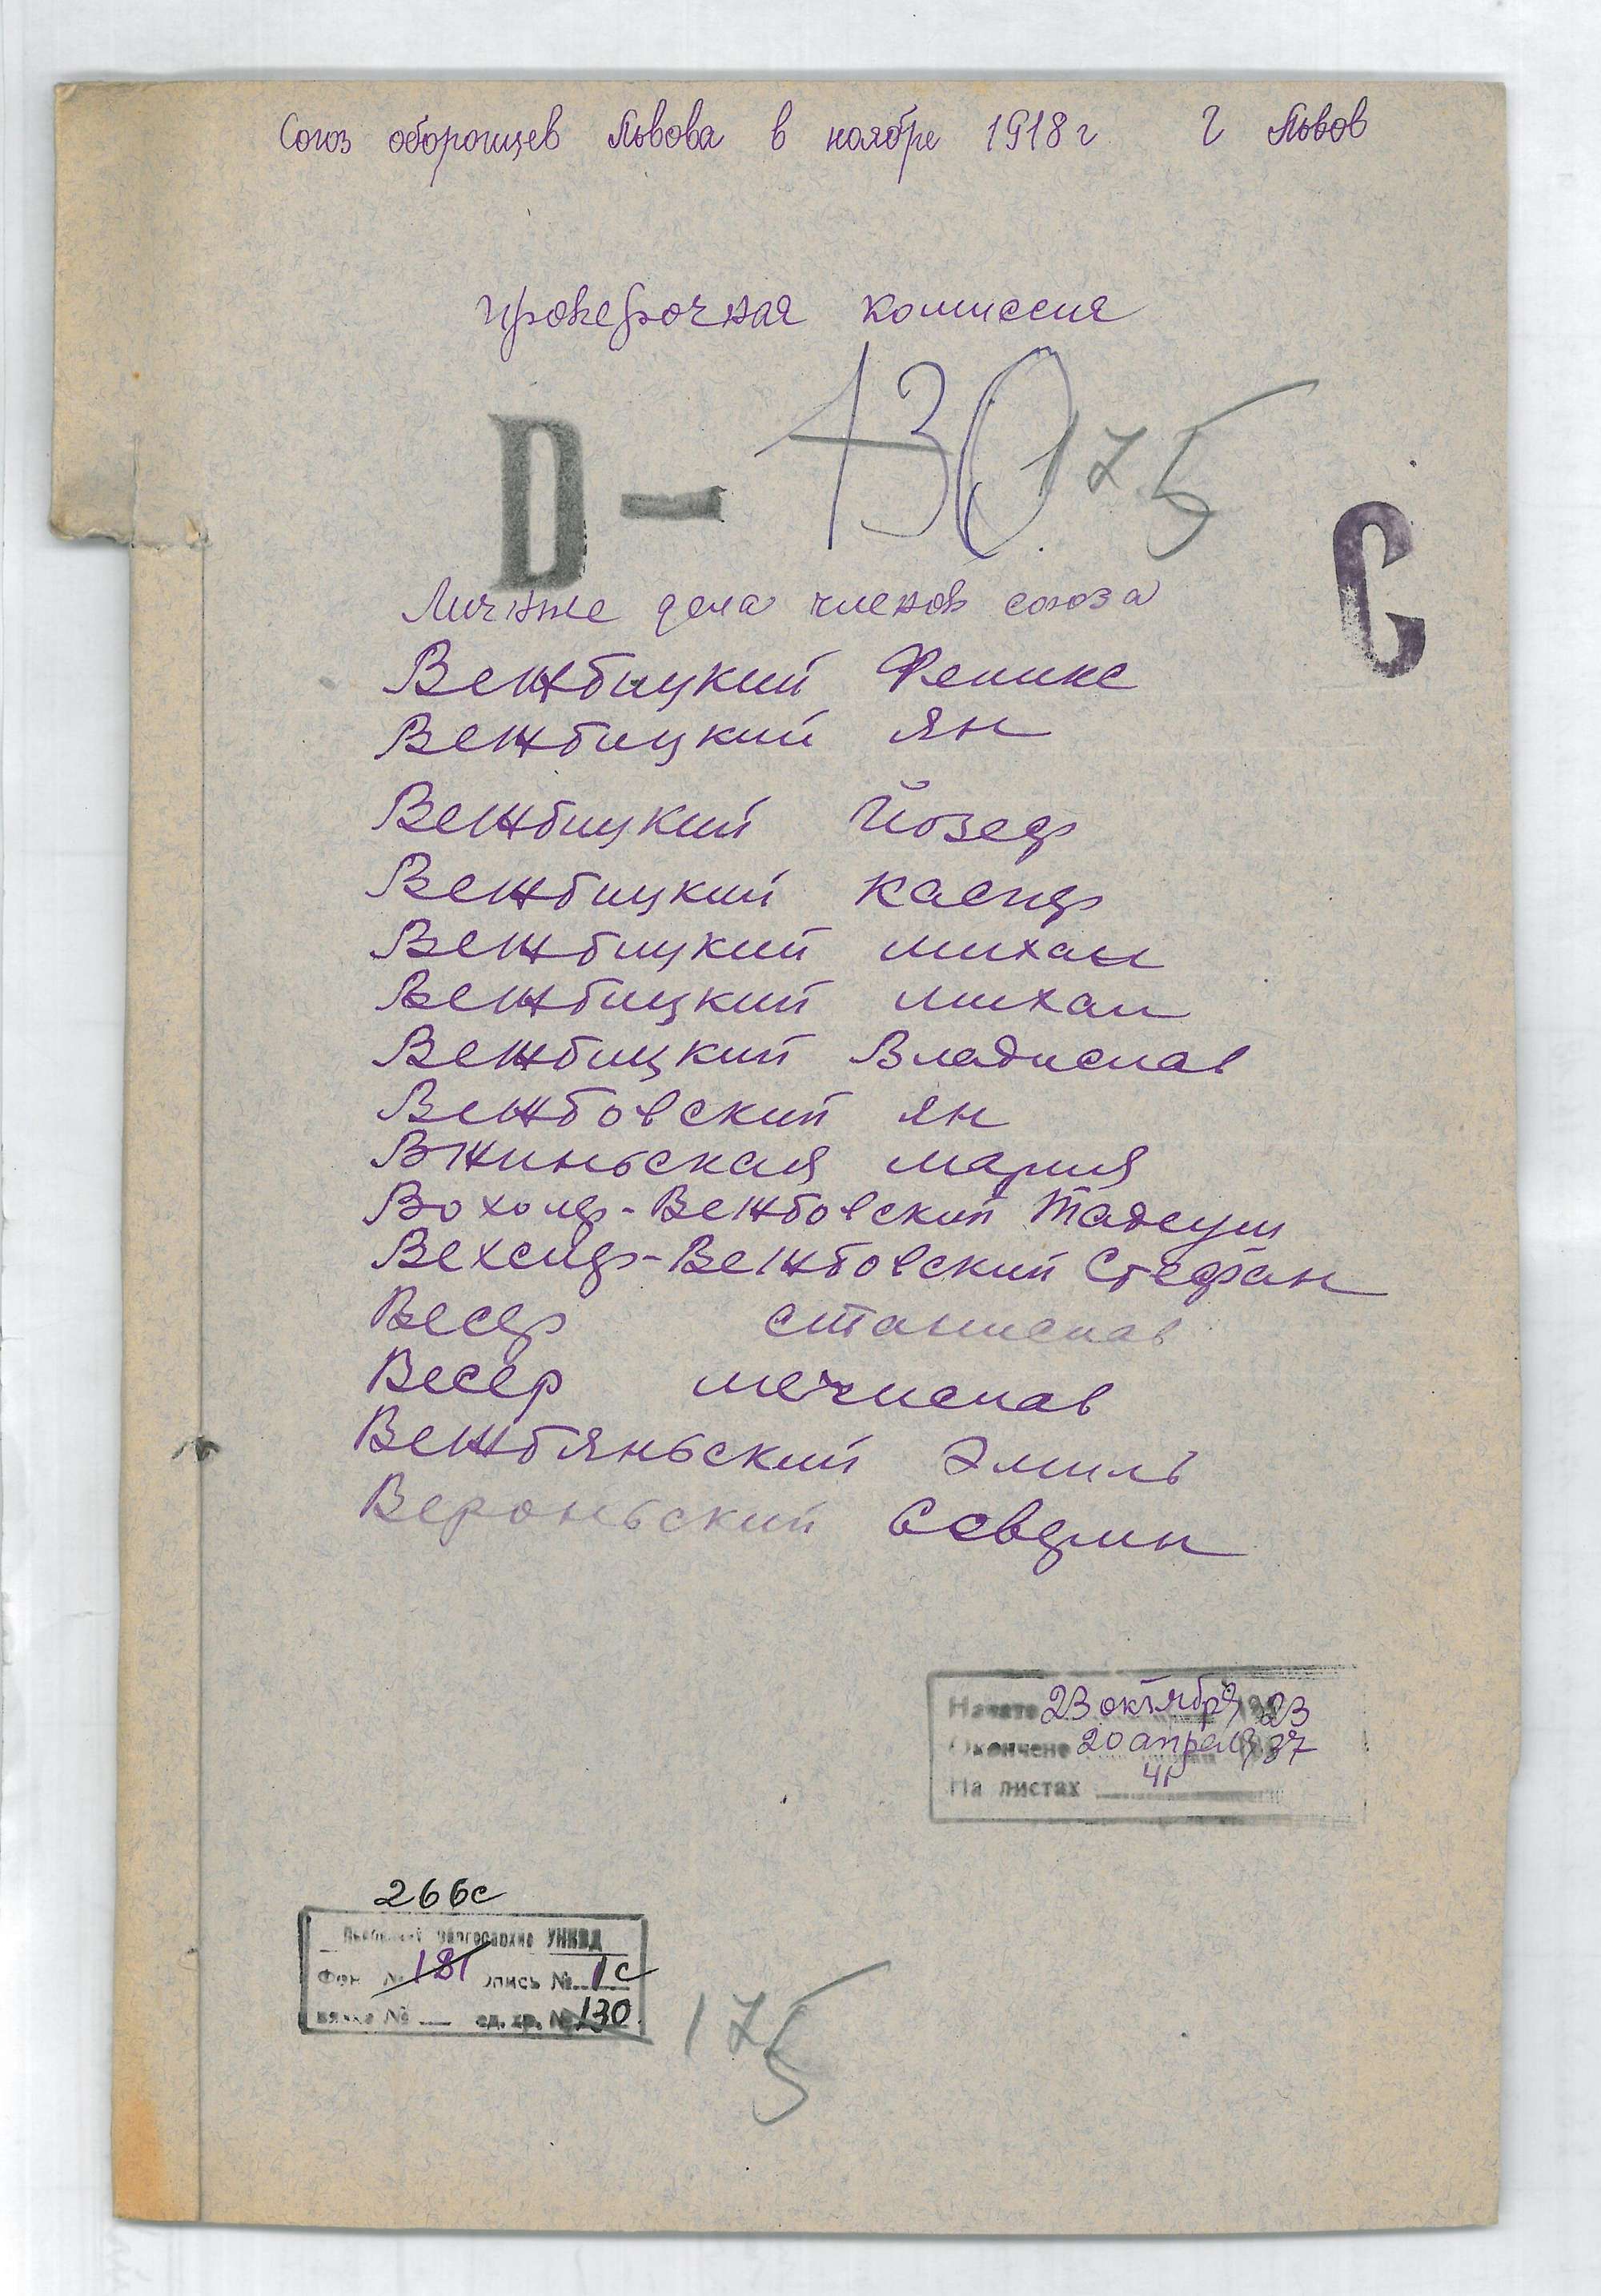 Союз оборонцев Львова в ноябре 1918 г г Львов
проверочная комиссия
D - 130 175
С
Личные дела членов союза
Вежбицкий Феликс
Вежбицкий Ян
Вежбицкий Йозеф
Вежбицкий
Вежбицкий михал
Вежбицкий михал
Вежбицкий Владислав
Вежбовский ян
Вжиньская мария
Вежбовский Тадеуш
Вежбовский Стефан
Весер станислав
Весер мечислав
Вежбяньский Эмиль
Вероньский Северин
Начато 23 октября 1923
Окончено 20 апреля 1937
На листах 41
266с
Львовский облгосархив УНКВД
Фонд № 181 опись № 1с
вязка № ед. хр. № 130
175